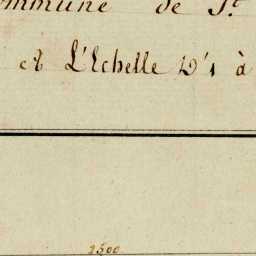 ommune de St
et L'Echelle D'1 à
2500